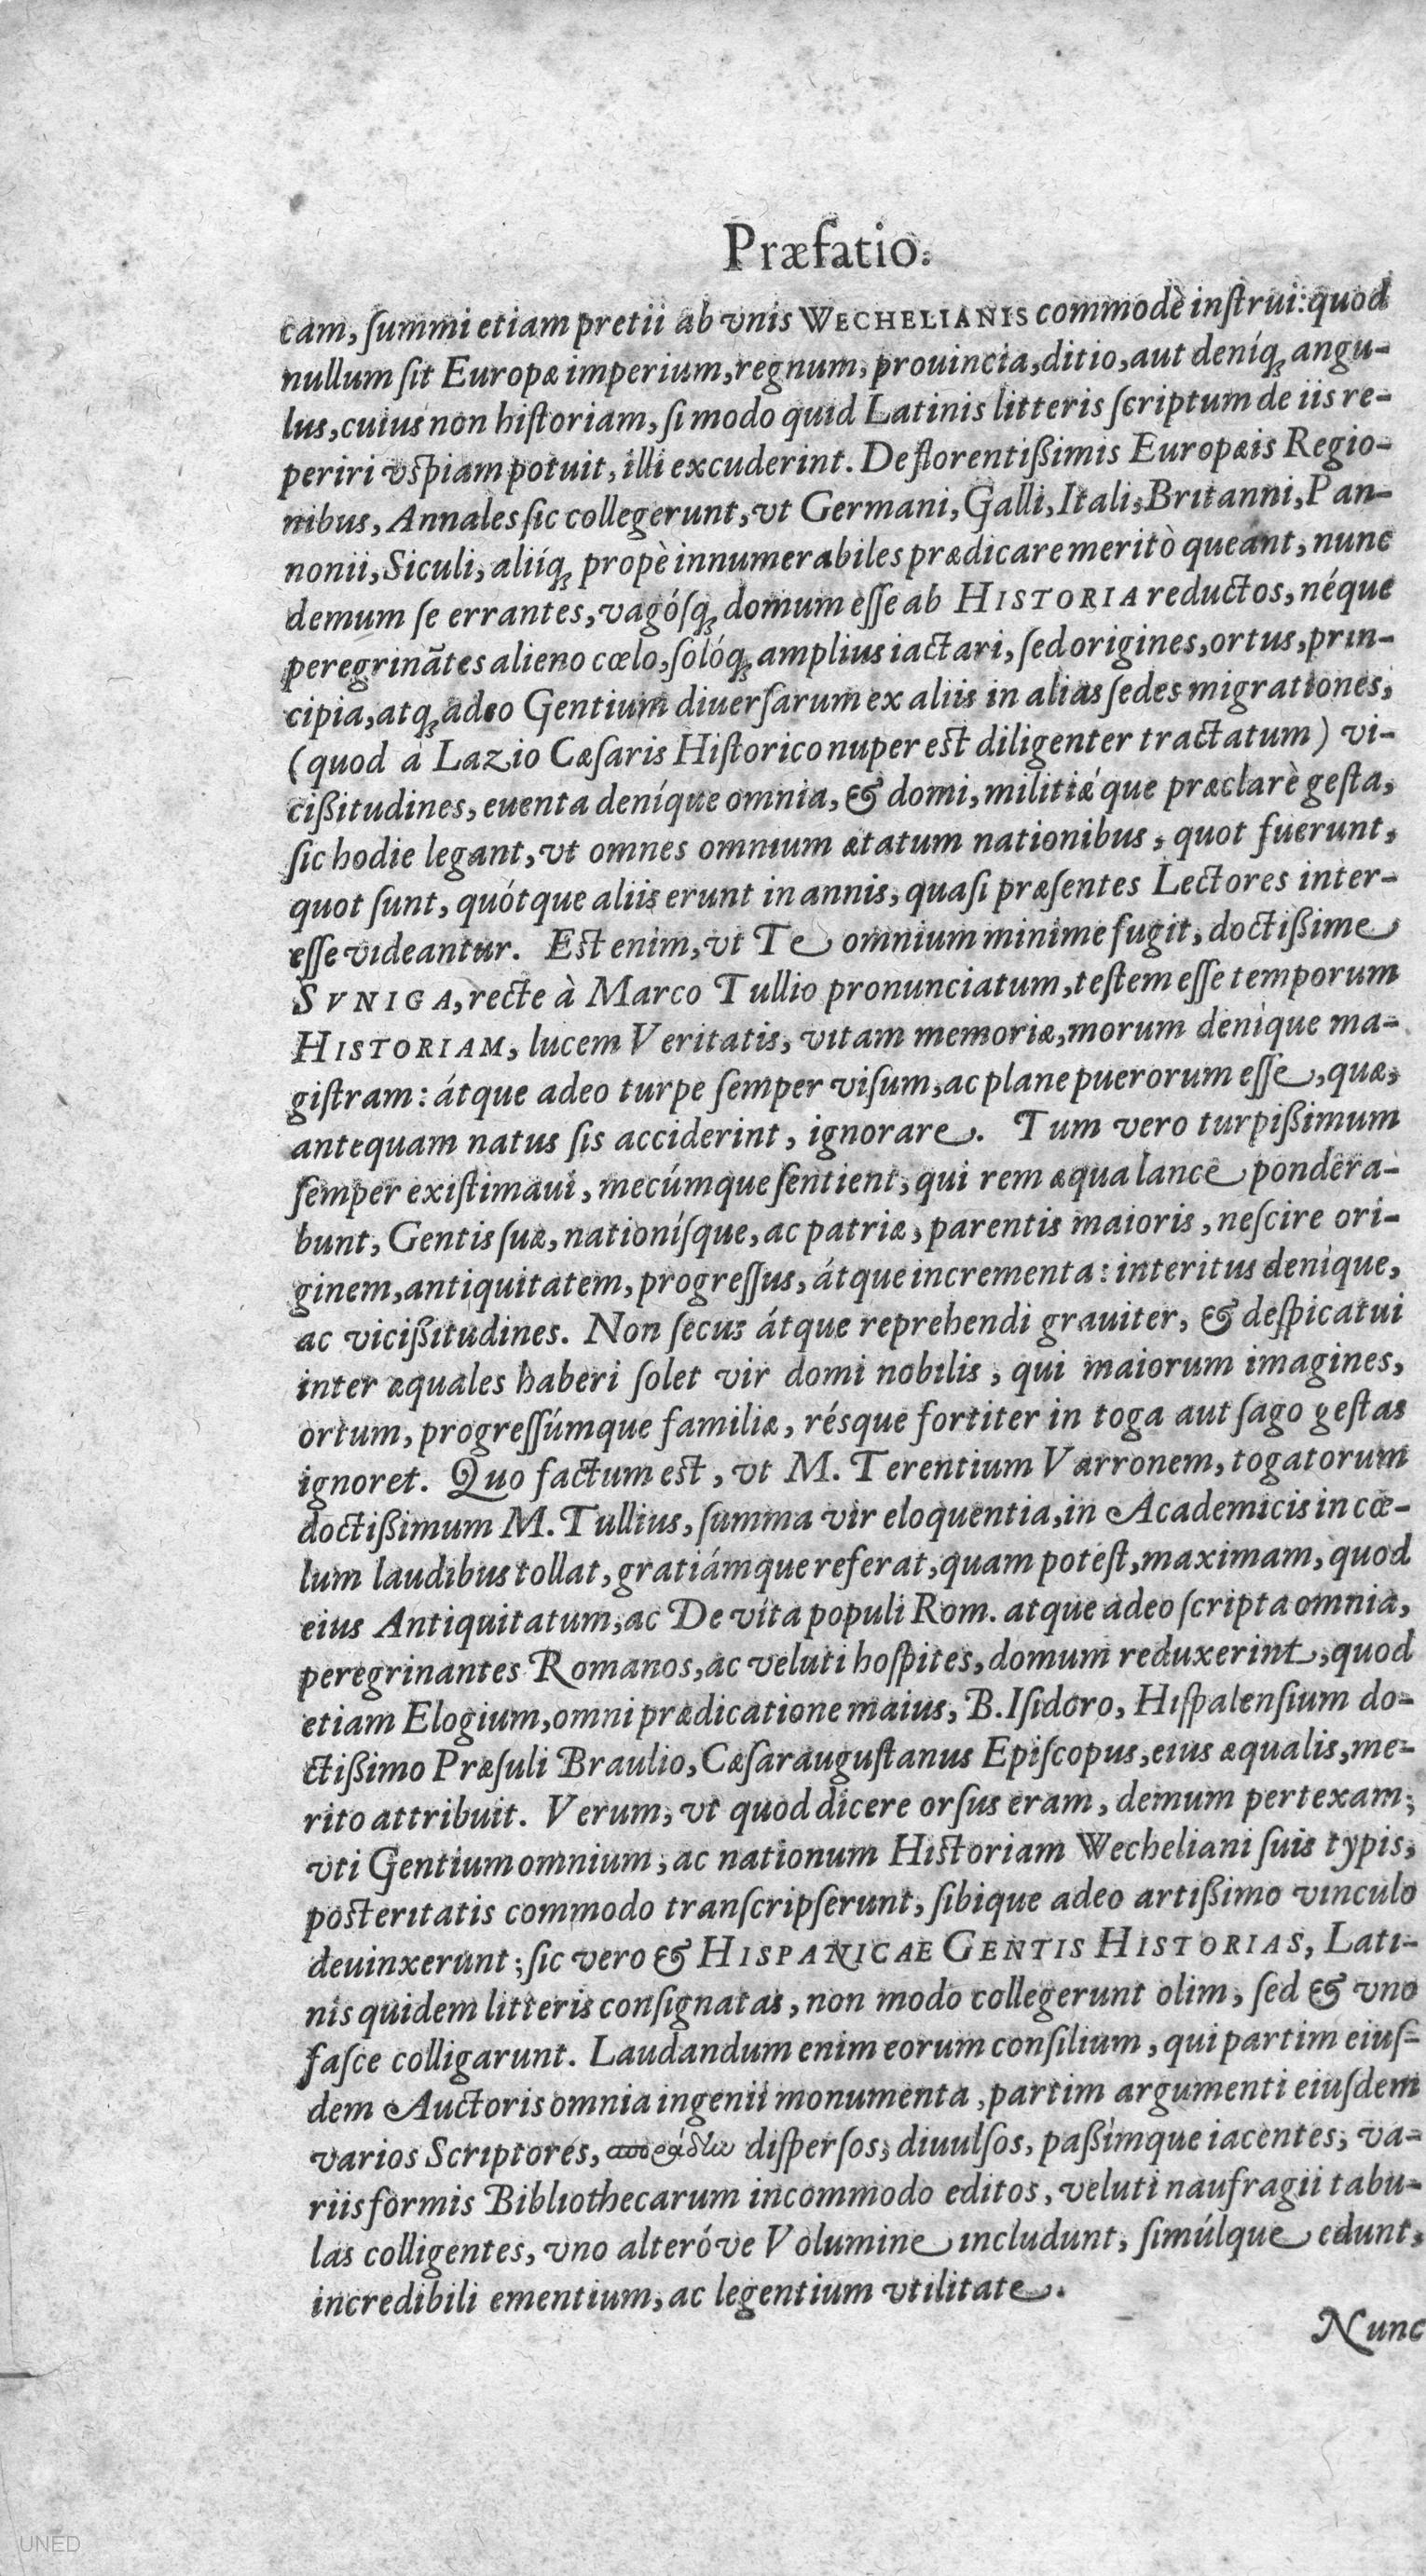 Præfatio.
cam, ſummi etiam pretii ab vnis WECHELIANIS commodè inſtrui: quod
nullum ſit Europæ imperium, regnum, prouincia, ditio, aut deníq; angu-
lus, cuius non hiſtoriam, ſi modo quid Latinis litteris ſcriptum de iis re-
periri vſpiam potuit, illi excuderint. De florentißimis Europæis Regio-
nibus, Annales ſic collegerunt, vt Germani, Galli, Itali, Britanni, Pan-
nonii, Siculi, aliíq; propè innumerabiles prædicare meritò queant, nunc
demum ſe errantes, vagóſq; domum eſſe ab HISTORIA reductos, néque
peregrinãtes alieno cœlo, ſolóq; amplius iactari, ſed origines, ortus, prin-
cipia, atq; adeo Gentium diuerſarum ex aliis in alias ſedes migrationes,
(quod à Lazio Cæſaris Hiſtorico nuper est diligenter tractatum) vi-
cißitudines, euenta deníque omnia, & domi, militiǽque præclarè geſta,
ſic hodie legant, vt omnes omnium ætatum nationibus, quot fuerunt,
quot ſunt, quótque aliis erunt in annis, quaſi præſentes Lectores inter-
eſſe videantur. Est enim, vt Te omnium minime fugit, doctißime
SVNIGA, recte à Marco Tullio pronunciatum, teſtem eſſe temporum
HISTORIAM, lucem Veritatis, vitam memoriæ, morum deníque ma-
giſtram: átque adeo turpe ſemper viſum, ac plane puerorum eſſe, quæ,
antequam natus ſis acciderint, ignorare. Tum vero turpißimum
ſemper exiſtimaui, mecúmque ſentient, qui rem æqua lance pondera-
bunt, Gentis ſuæ, nationíſque, ac patriæ, parentis maioris, neſcire ori-
ginem, antiquitatem, progreſſus, átque incrementa: interitus deníque,
ac vicißitudines. Non ſecus átque reprehendi grauiter, & deſpicatui
inter æquales haberi ſolet vir domi nobilis, qui maiorum imagines,
ortum, progreſſúmque familiæ, réſque fortiter in toga aut ſago geſtas
ignoret. Quo factum est, vt M. Terentium Varronem, togatorum
doctißimum M. Tullius, ſumma vir eloquentia, in Academicis in cœ-
lum laudibus tollat, gratiámque referat, quam poteſt, maximam, quod
eius Antiquitatum, ac De víta populi Rom. atque adeo ſcripta omnia,
peregrinantes Romanos, ac veluti hoſpites, domum reduxerint, quod
etiam Elogium, omni prædicatione maius, B. Iſidoro, Hiſpalenſium do-
ctißimo Præſuli Braulio, Cæſarauguſtanus Epiſcopus, eius æqualis, me-
rito attribuit. Verum, vt quod dicere orſus eram, demum pertexam;
vti Gentium omnium, ac nationum Historiam Wecheliani ſuis typis,
posteritatis commodo tranſcripſerunt, ſibique adeo artißimo vinculo
deuinxerunt; ſic vero & HISPANICAE GENTIS HISTORIAS, Lati-
nis quidem litteris conſignatas, non modo collegerunt olim, ſed & vno
faſce colligarunt. Laudandum enim eorum conſilium, qui partim eiuſ-
dem Auctoris omnia ingenii monumenta, partim argumenti eiuſdem
varios Scriptores, diſperſos, diuulſos, paßímque iacentes, va-
riis formis Bibliothecarum incommodo editos, veluti naufragii tabu-
las colligentes, vno alteróve Volumine includunt, ſimúlque edunt,
incredibili ementium, ac legentium vtilitate.
Nunc
UNED